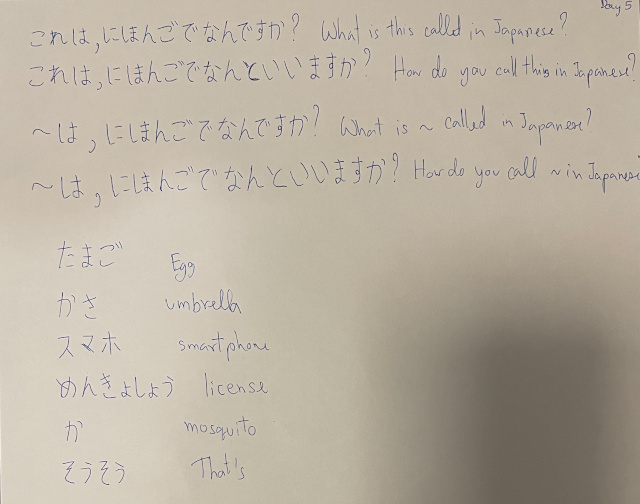 Day 5
これは,にほんごでなんですか? What is this called in Japanese?
これは,にほんごでなんといいますか? How do you call this in Japanese?
~は,にほんごでなんですか? What is ~ called in Japanese?
~は,にほんごでなんといいますか? How do you call ~ in Japanese
たまご Egg
かさ umbrella
スマホ smartphone
めんきょしょう license
か mosquito
そうそう That's